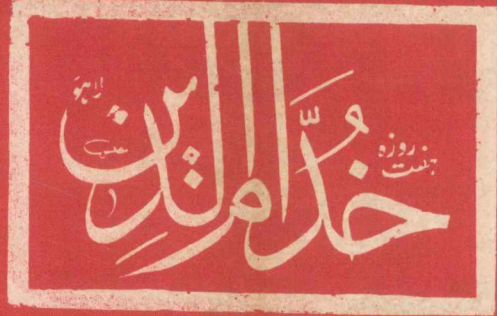 ہفت روزہ
خُدّام الدّین
لاہور